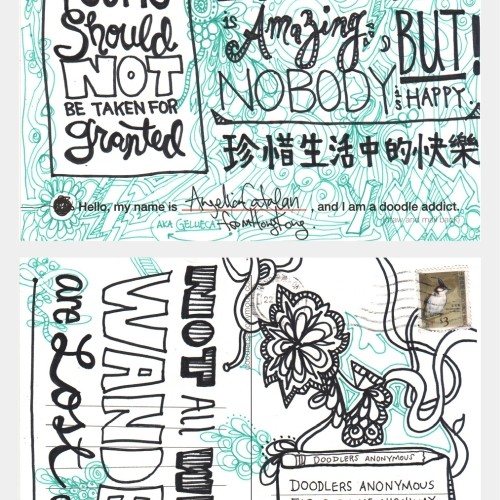 Should
NOT
BE TAKEN FOR
granted
is Amazing
BUT!
NOBODY is HAPPY.
珍惜生活中的快樂
Hello, my name is Angelica Catalan, and I am a doodle addict.
AKA GELUECA from Hong Kong.
NOT All
WANDE
are Lost
22
3
DOODLERS ANONYMOUS
DOODLERS ANONYMOUS